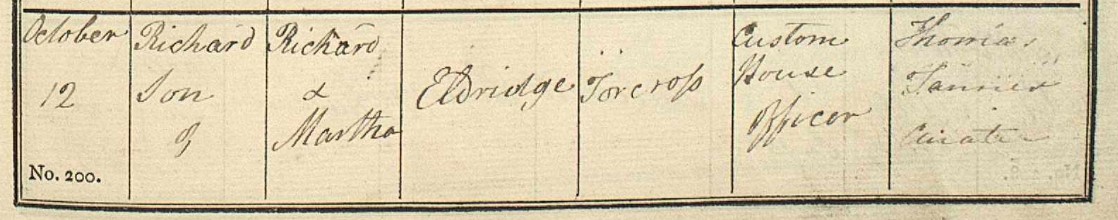 October
12
No. 200.
Richard
Son
of
Richard
&
Martha
Eldridge
Torcross
Custom
House
Officer
Thomas
Curate